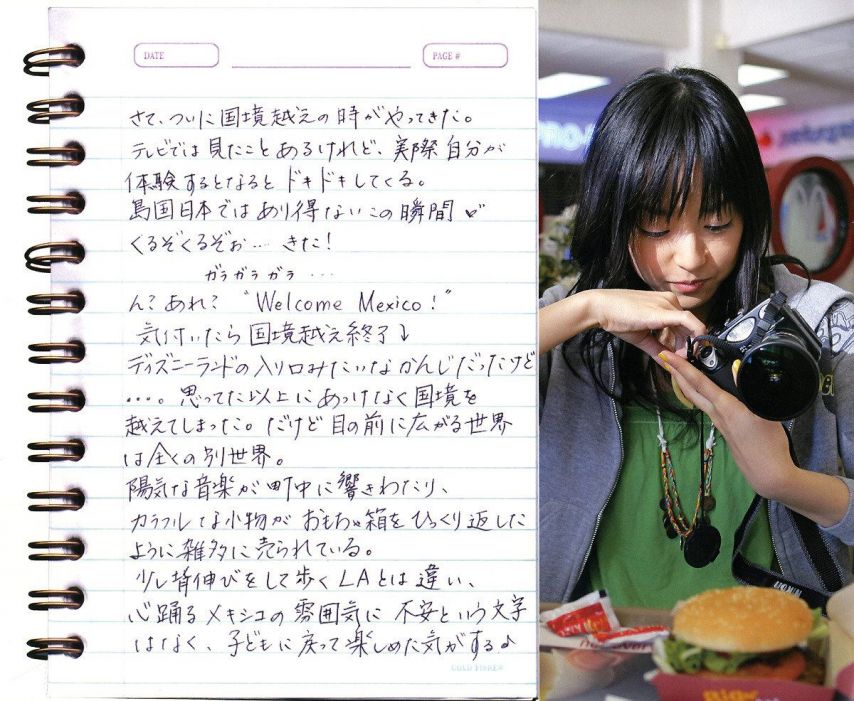 DATE
PAGE #
さて、ついに国境越えの時がやってきた。
テレビでは見たことあるけれど、実際自分が
体験するとなるとドキドキしてくる。
島国日本ではあり得ないこの瞬間
くるぞくるぞぉ… きた!
ガラガラガラ …
ん? あれ? "Welcome Mexico!"
気付いたら国境越え終了↓
ディズニーランドの入り口みたいなかんじだったけど
…。思ってた以上にあっけなく国境を
越えてしまった。だけど目の前に広がる世界
は全くの別世界。
陽気な音楽が町中に響きわたり、
カラフルな小物がおもちゃ箱をひっくり返した
ように雑多に売られている。
少し背伸びをして歩くLAとは違い、
心踊るメキシコの雰囲気に不安という文字
はなく、子どもに戻って楽しめた気がする♪
NIKON